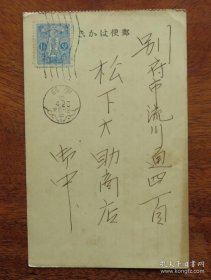 郵便はかき
別府市流川通四丁目
松下大助商店
御中